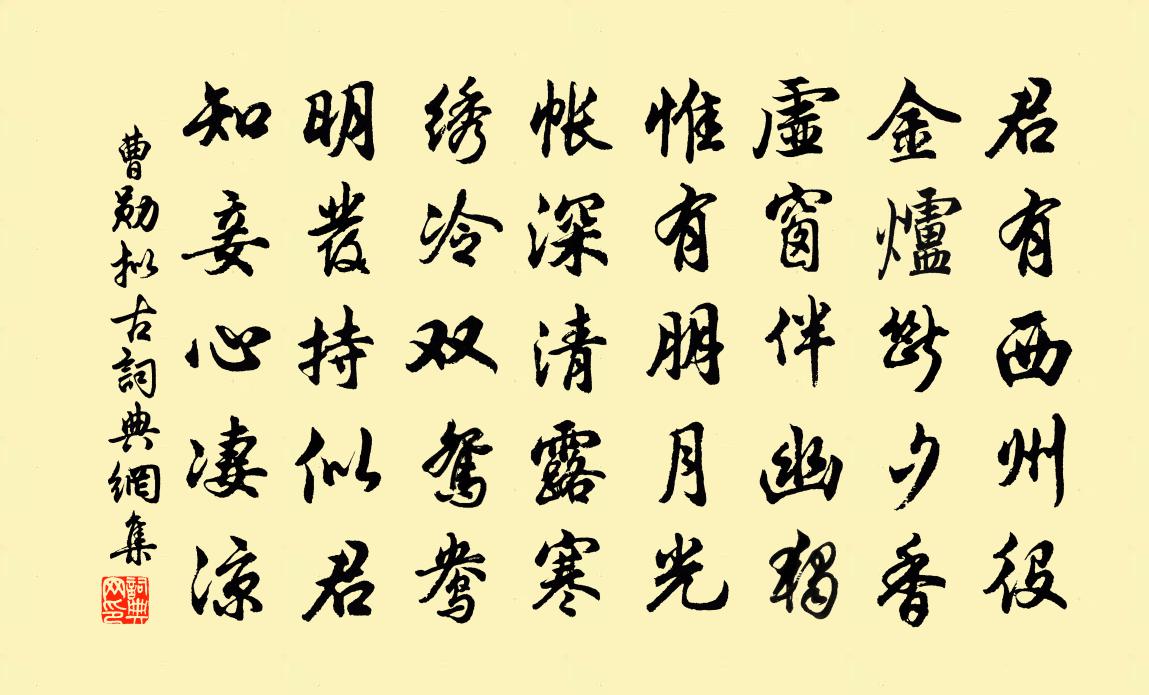 君有西州役
金爐斷夕香
虛窗伴幽獨
惟有明月光
帐深清露寒
绣冷双鴛鴦
明發持似君
知妾心淒涼
曹勛拟古詞典網集
詞典网印